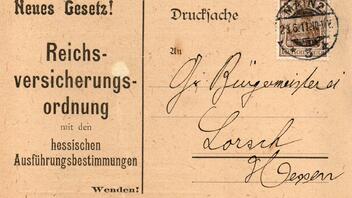 Neues Gesetz!
Reichs-
versicherungs-
ordnung
mit den
hessischen
Ausführungsbestimmungen
Wenden!
Drucksache
MAINZ
An
Gr Bürgermeisterei
Lorsch
Hessen